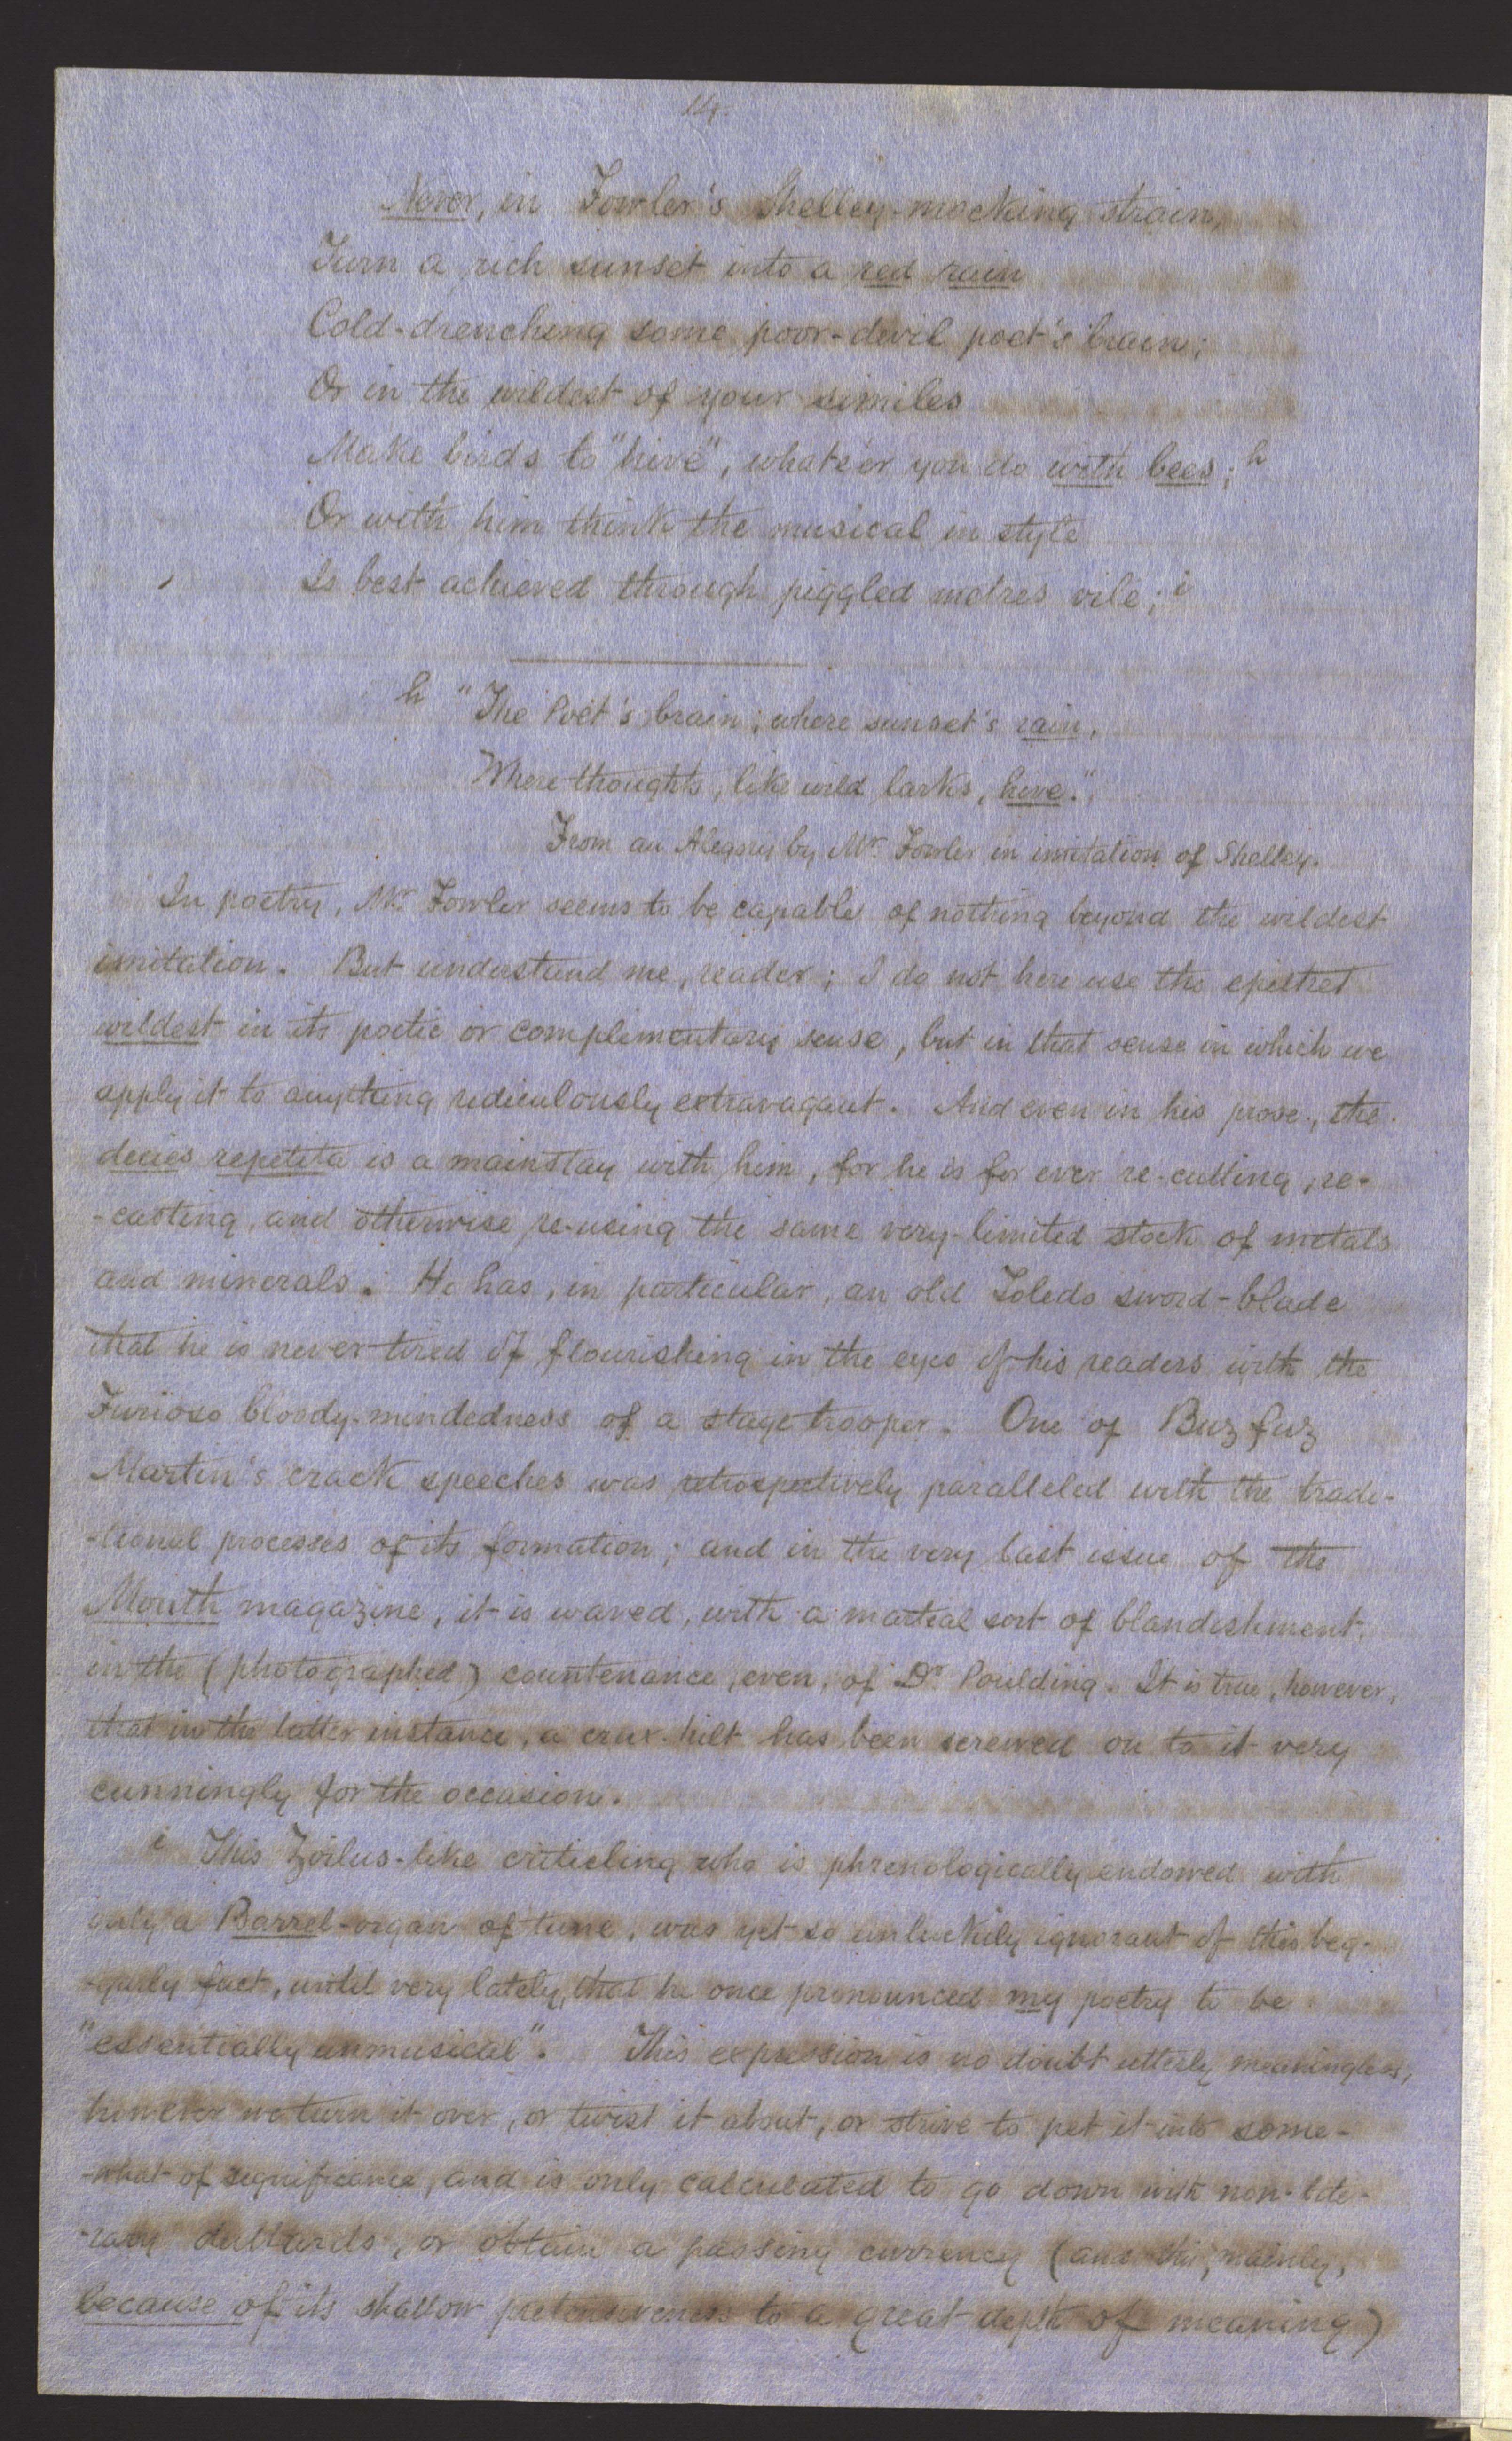 114.
Never, in Fowler's Shelley-mocking strain,
Turn a rich sunset into a red rain
Cold-drenching some poor-devil poet's brain;
Or in the wildest of your similes
Make birds to "hive", whate'er you do with bees; h
Or with him think the musical in style
Is best achieved through piggled metres vile; i
h "The Poet's brain; where sunset's rain,
Where thoughts, like wild larks, hive."
From an Alegory by Mr. Fowler in imitation of Shelley.
In poetry, Mr. Fowler seems to be capable of nothing beyond the wildest
imitation. But understand me, reader; I do not here use the epithet
wildest in its poetic or complimentary sense, but in that sense in which we
apply it to anything rediculously extravagant. And even in his prose, the
decies repetita is a mainstay with him, for he is for ever re-culling, re-
-casting, and otherwise re-using the same very-limited stock of metals
and minerals. He has, in particular, an old Toledo sword-blade
that he is never tired of flourishing in the eyes of his readers with the
Furioso bloody-mindedness of a stage trooper. One of Buzfuz
Martin's crack speeches was retrospectively paralleled with the tradi-
-tional processes of its formation; and in the very last issue of the
Month magazine, it is waved, with a martial sort of blandishment,
in the (photographed) countenance, even, of Dr Poulding. It is true, however,
that in the latter instance, a crux-hilt has been screwed on to it very
cunningly for the occasion.
i This Zoilus-like criticling who is phrenologically endowed with
only a Barrel-organ of tune, was yet so unluckily ignorant of this beg-
-garly fact, until very lately, that he once pronounced my poetry to be
"essentially unmusical". This expression is no doubt utterly meaningless,
however we turn it over, or twist it about, or strive to pet it into some-
-what of significance, and is only calculated to go down with non-lite-
-rary dullards, or obtain a passing currency (and this, mainly,
because of its shallow pretensiveness to a great depth of meaning)